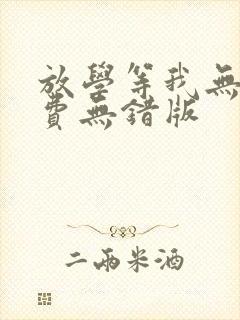 放學等我無
費無錯版
二兩米酒